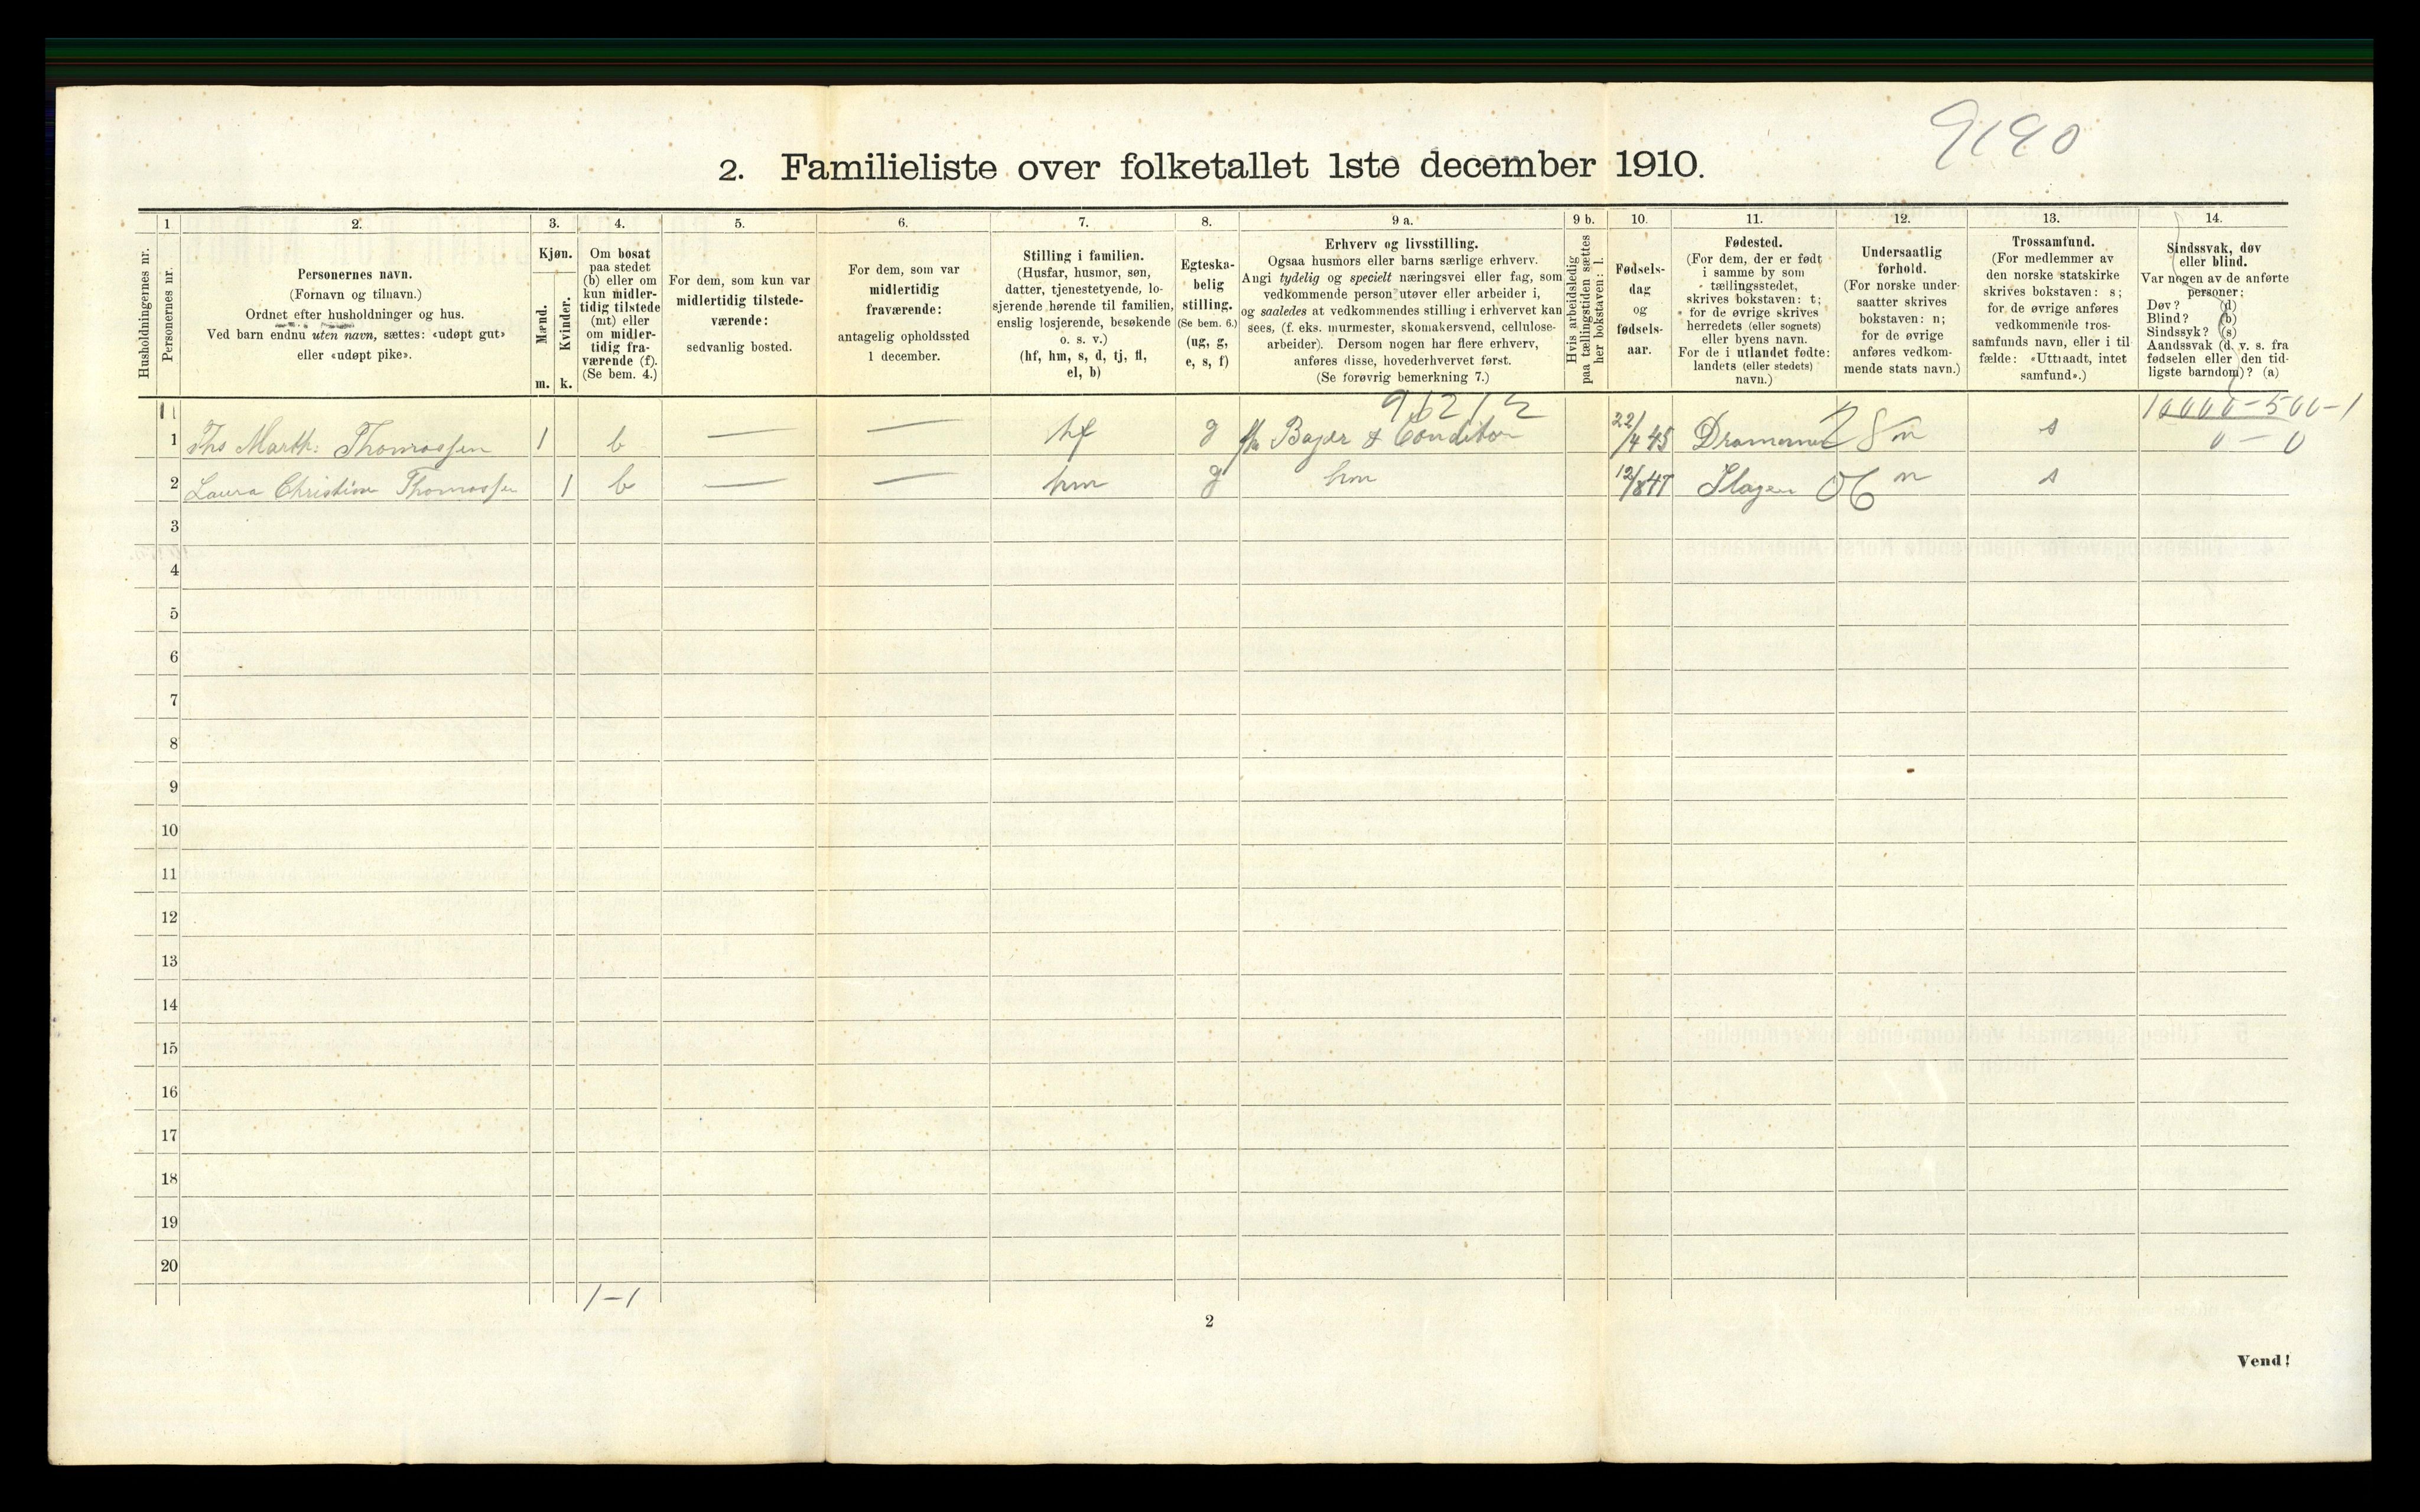 9190
2. Familieliste over folketallet 1ste december 1910.
Husholdningernes nr.
1
Personernes nr.
2.
Personernes navn.
(Fornavn og tilnavn.)
Ordnet efter husholdninger og hus.
Ved barn endnu uten navn, sættes: «udøpt gut»
eller «udøpt pike».
3.
Kjøn.
Mænd.
Kvinder.
m. k.
4.
Om bosat
paa stedet
(b) eller om
kun midler-
tidig tilstede
(mt) eller
om midler-
tidig fra-
værende (f).
(Se bem. 4.)
5.
For dem, som kun var
midlertidig tilstede-
værende:
sedvanlig bosted.
6.
For dem, som var
midlertidig
fraværende:
antagelig opholdssted
1 december.
7.
Stilling i familien.
(Husfar, husmor, søn,
datter, tjenestetyende, lo-
sjerende hørende til familien,
enslig losjerende, besøkende
o. s. v.)
(hf, hm, s, d, tj, fl,
el, b)
8.
Egteska-
belig
stilling.
(Se bem. 6.)
(ug, g,
e, s, f)
9 a.
Erhverv og livsstilling.
Ogsaa husmors eller barns særlige erhverv.
Angi tydelig og specielt næringsvei eller fag, som
vedkommende person utøver eller arbeider i,
og saaledes at vedkommendes stilling i erhvervet kan
sees, (f. eks. murmester, skomakersvend, cellulose-
arbeider). Dersom nogen har flere erhverv,
anføres disse, hovederhvervet først.
(Se forøvrig bemerkning 7.)
9 b.
Hvis arbeidsledig
paa tællingstiden sættes
her bokstaven: l.
10.
Fødsels-
dag
og
fødsels-
aar.
11.
Fødested.
(For dem, der er født
i samme by som
tællingsstedet,
skrives bokstaven: t;
for de øvrige skrives
herredets (eller sognets)
eller byens navn.
For de i utlandet fødte:
landets (eller stedets)
navn.)
12.
Undersaatlig
forhold.
(For norske under-
saatter skrives
bokstaven: n;
for de øvrige
anføres vedkom-
mende stats navn.)
13.
Trossamfund.
(For medlemmer av
den norske statskirke
skrives bokstaven: s;
for de øvrige anføres
vedkommende tros-
samfunds navn, eller i til
fælde: «Uttraadt, intet
samfund».)
14.
Sindssvak, døv
eller blind.
Var nogen av de anførte
personer:
Døv? (d)
Blind? (b)
Sindssyk? (s)
Aandssvak (d. v. s. fra
fødselen eller den tid-
ligste barndom)? (a)
10000-500-1
1 Ths Marth: Thomassen 1 b — — hf g Bager & Conditor 22/4 45 Drammen 28 n s 0-0
2 Laura Christine Thomassen 1 b — — hm g hm 12/8 47 Slagen 06 n s
3
4
5
6
7
8
9
10
11
12
13
14
15
16
17
18
19
20
1-1
2
Vend!